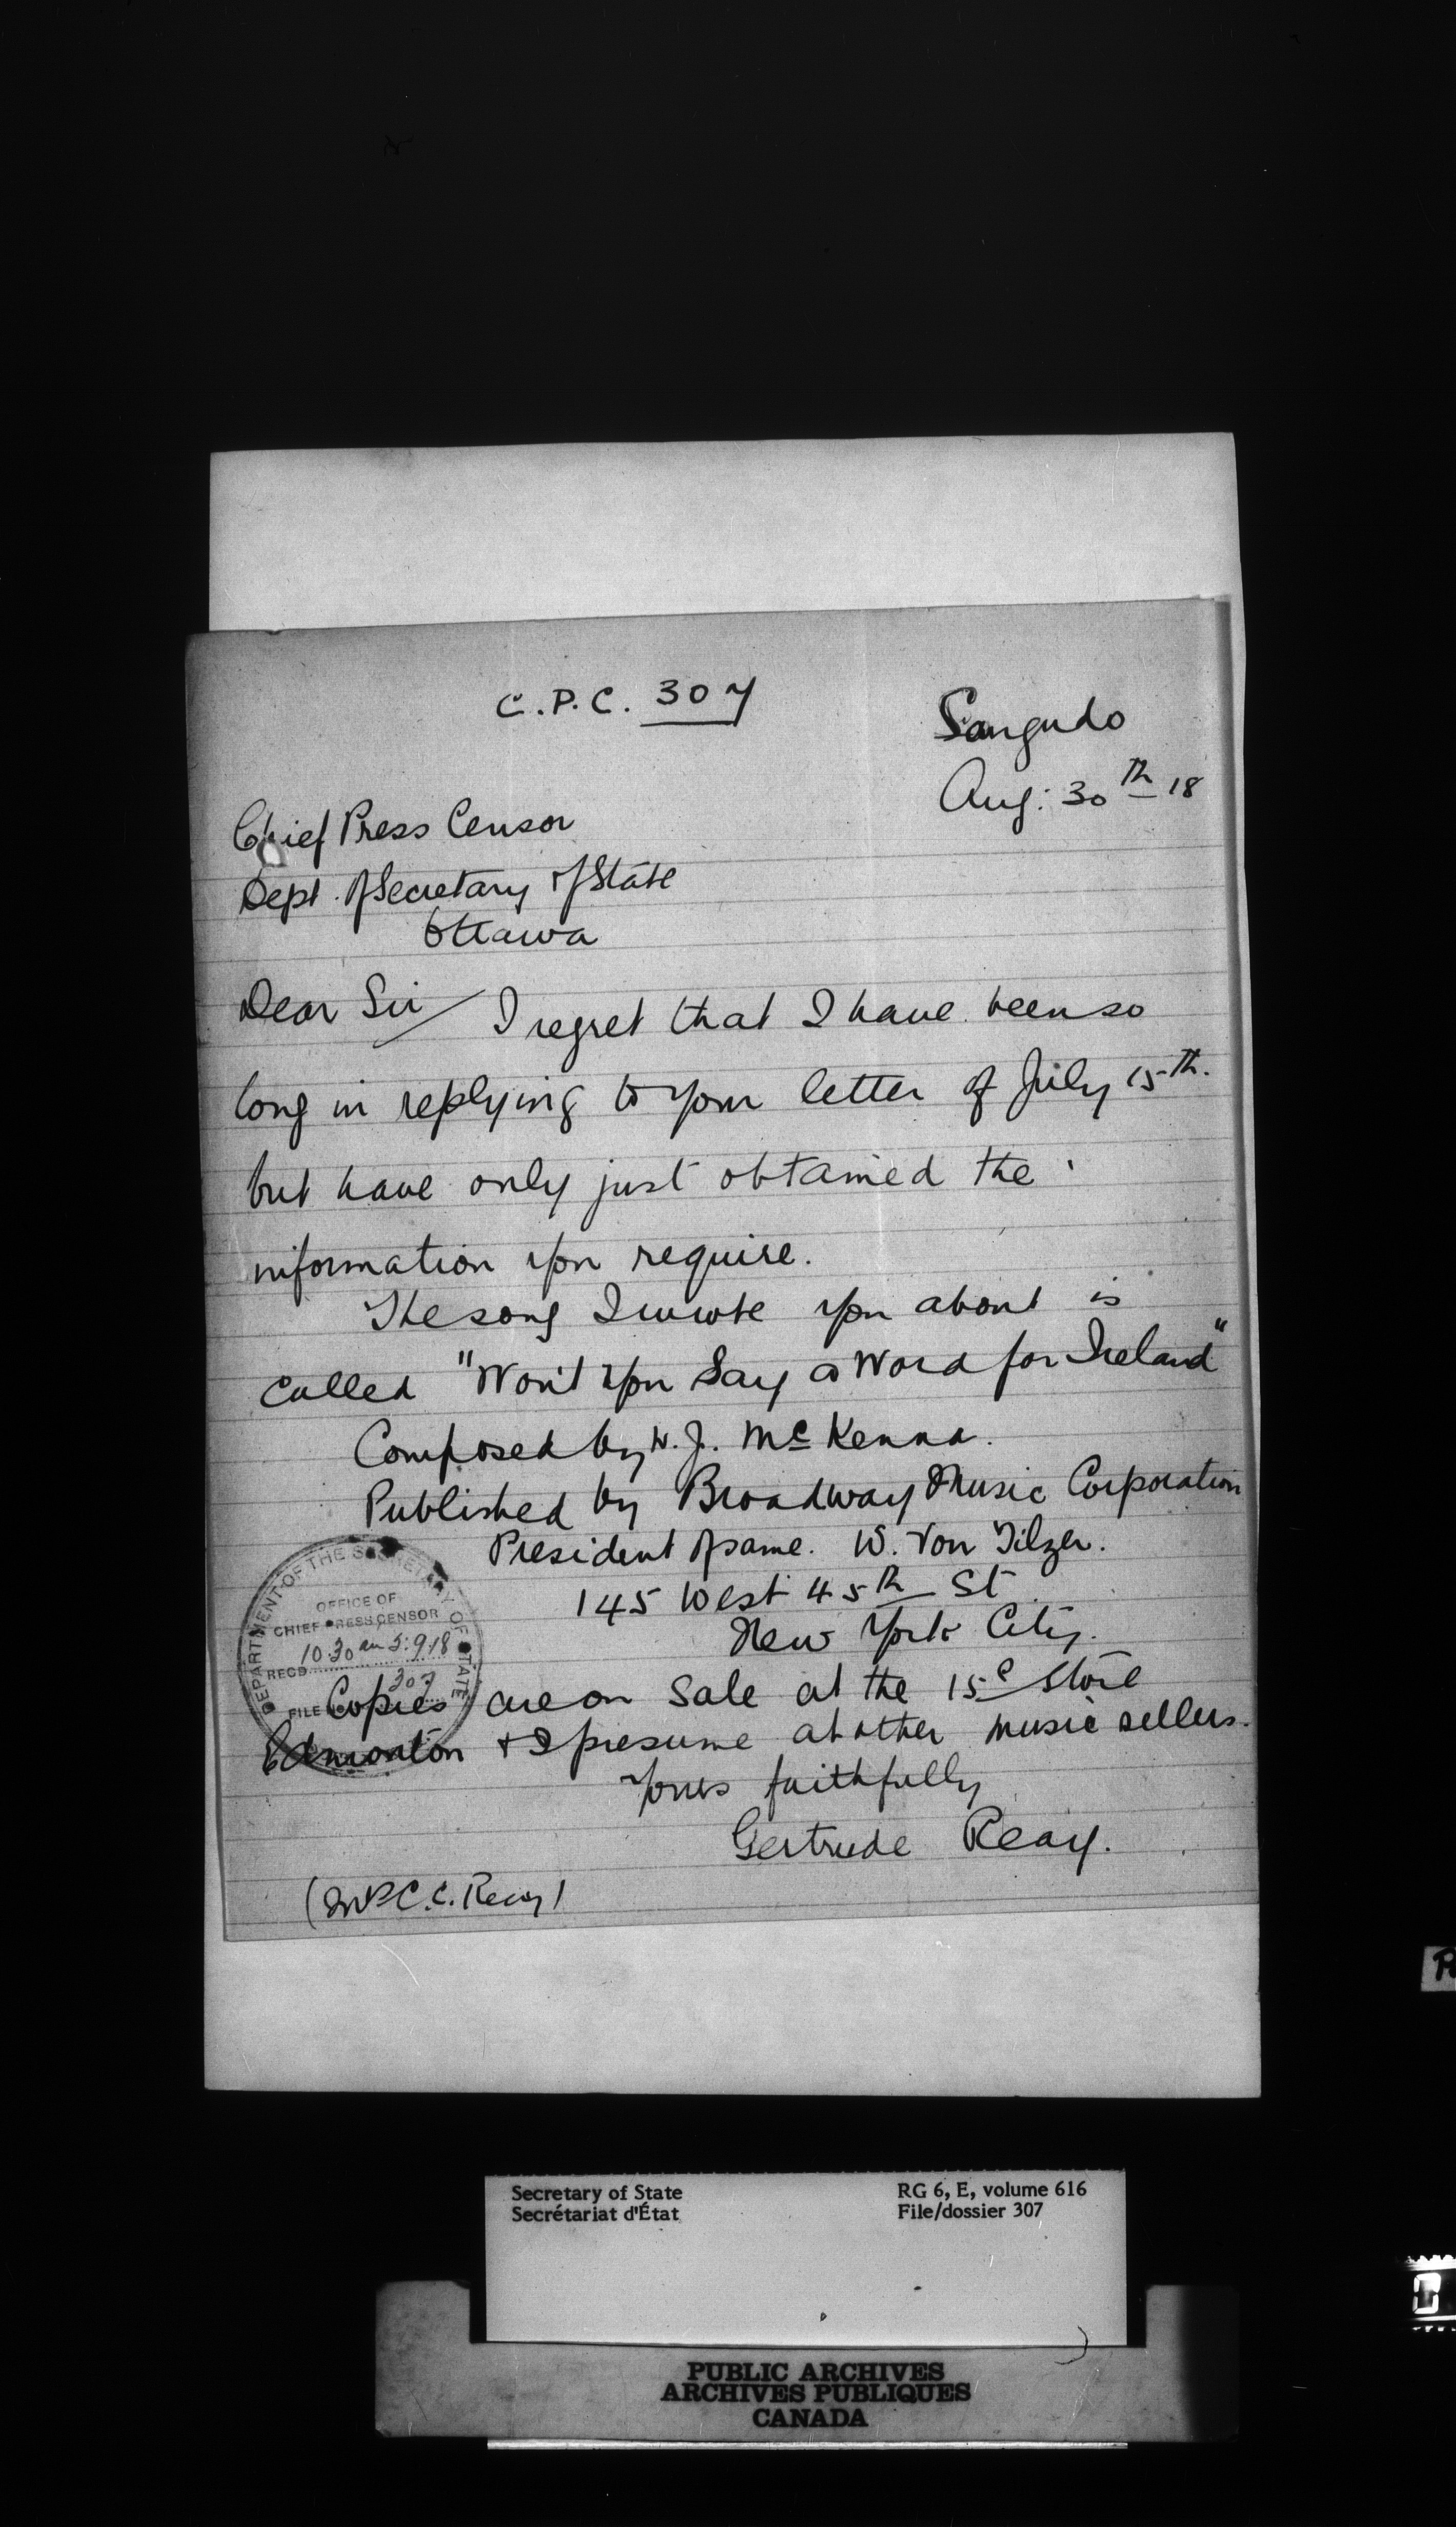 C.P.C. 307
Sangudo
Aug: 30th 18
Chief Press Censor
Dept. of Secretary of State
Ottawa
Dear Sir / I regret that I have been so
long in replying to your letter of July 15th.
but have only just obtained the
information you require.
The song I wrote you about is
called "Won't You Say a Word for Ireland"
Composed by W. J. McKenna.
Published by Broadway Music Corporation
President of same. W. Von Tilzer.
145 West 45th St
New York City.
DEPARTMENT OF THE SECRETARY OF STATE
OFFICE OF
CHIEF PRESS CENSOR
RECD 10.30 am 5.9.18
FILE 307
Copies are on sale at the 15c Store
Edmonton + I presume at other music sellers.
Yours faithfully
Gertrude Reay.
(Mrs C. C. Reay)
Secretary of State
Secrétariat d'État
RG 6, E, volume 616
File/dossier 307
PUBLIC ARCHIVES
ARCHIVES PUBLIQUES
CANADA